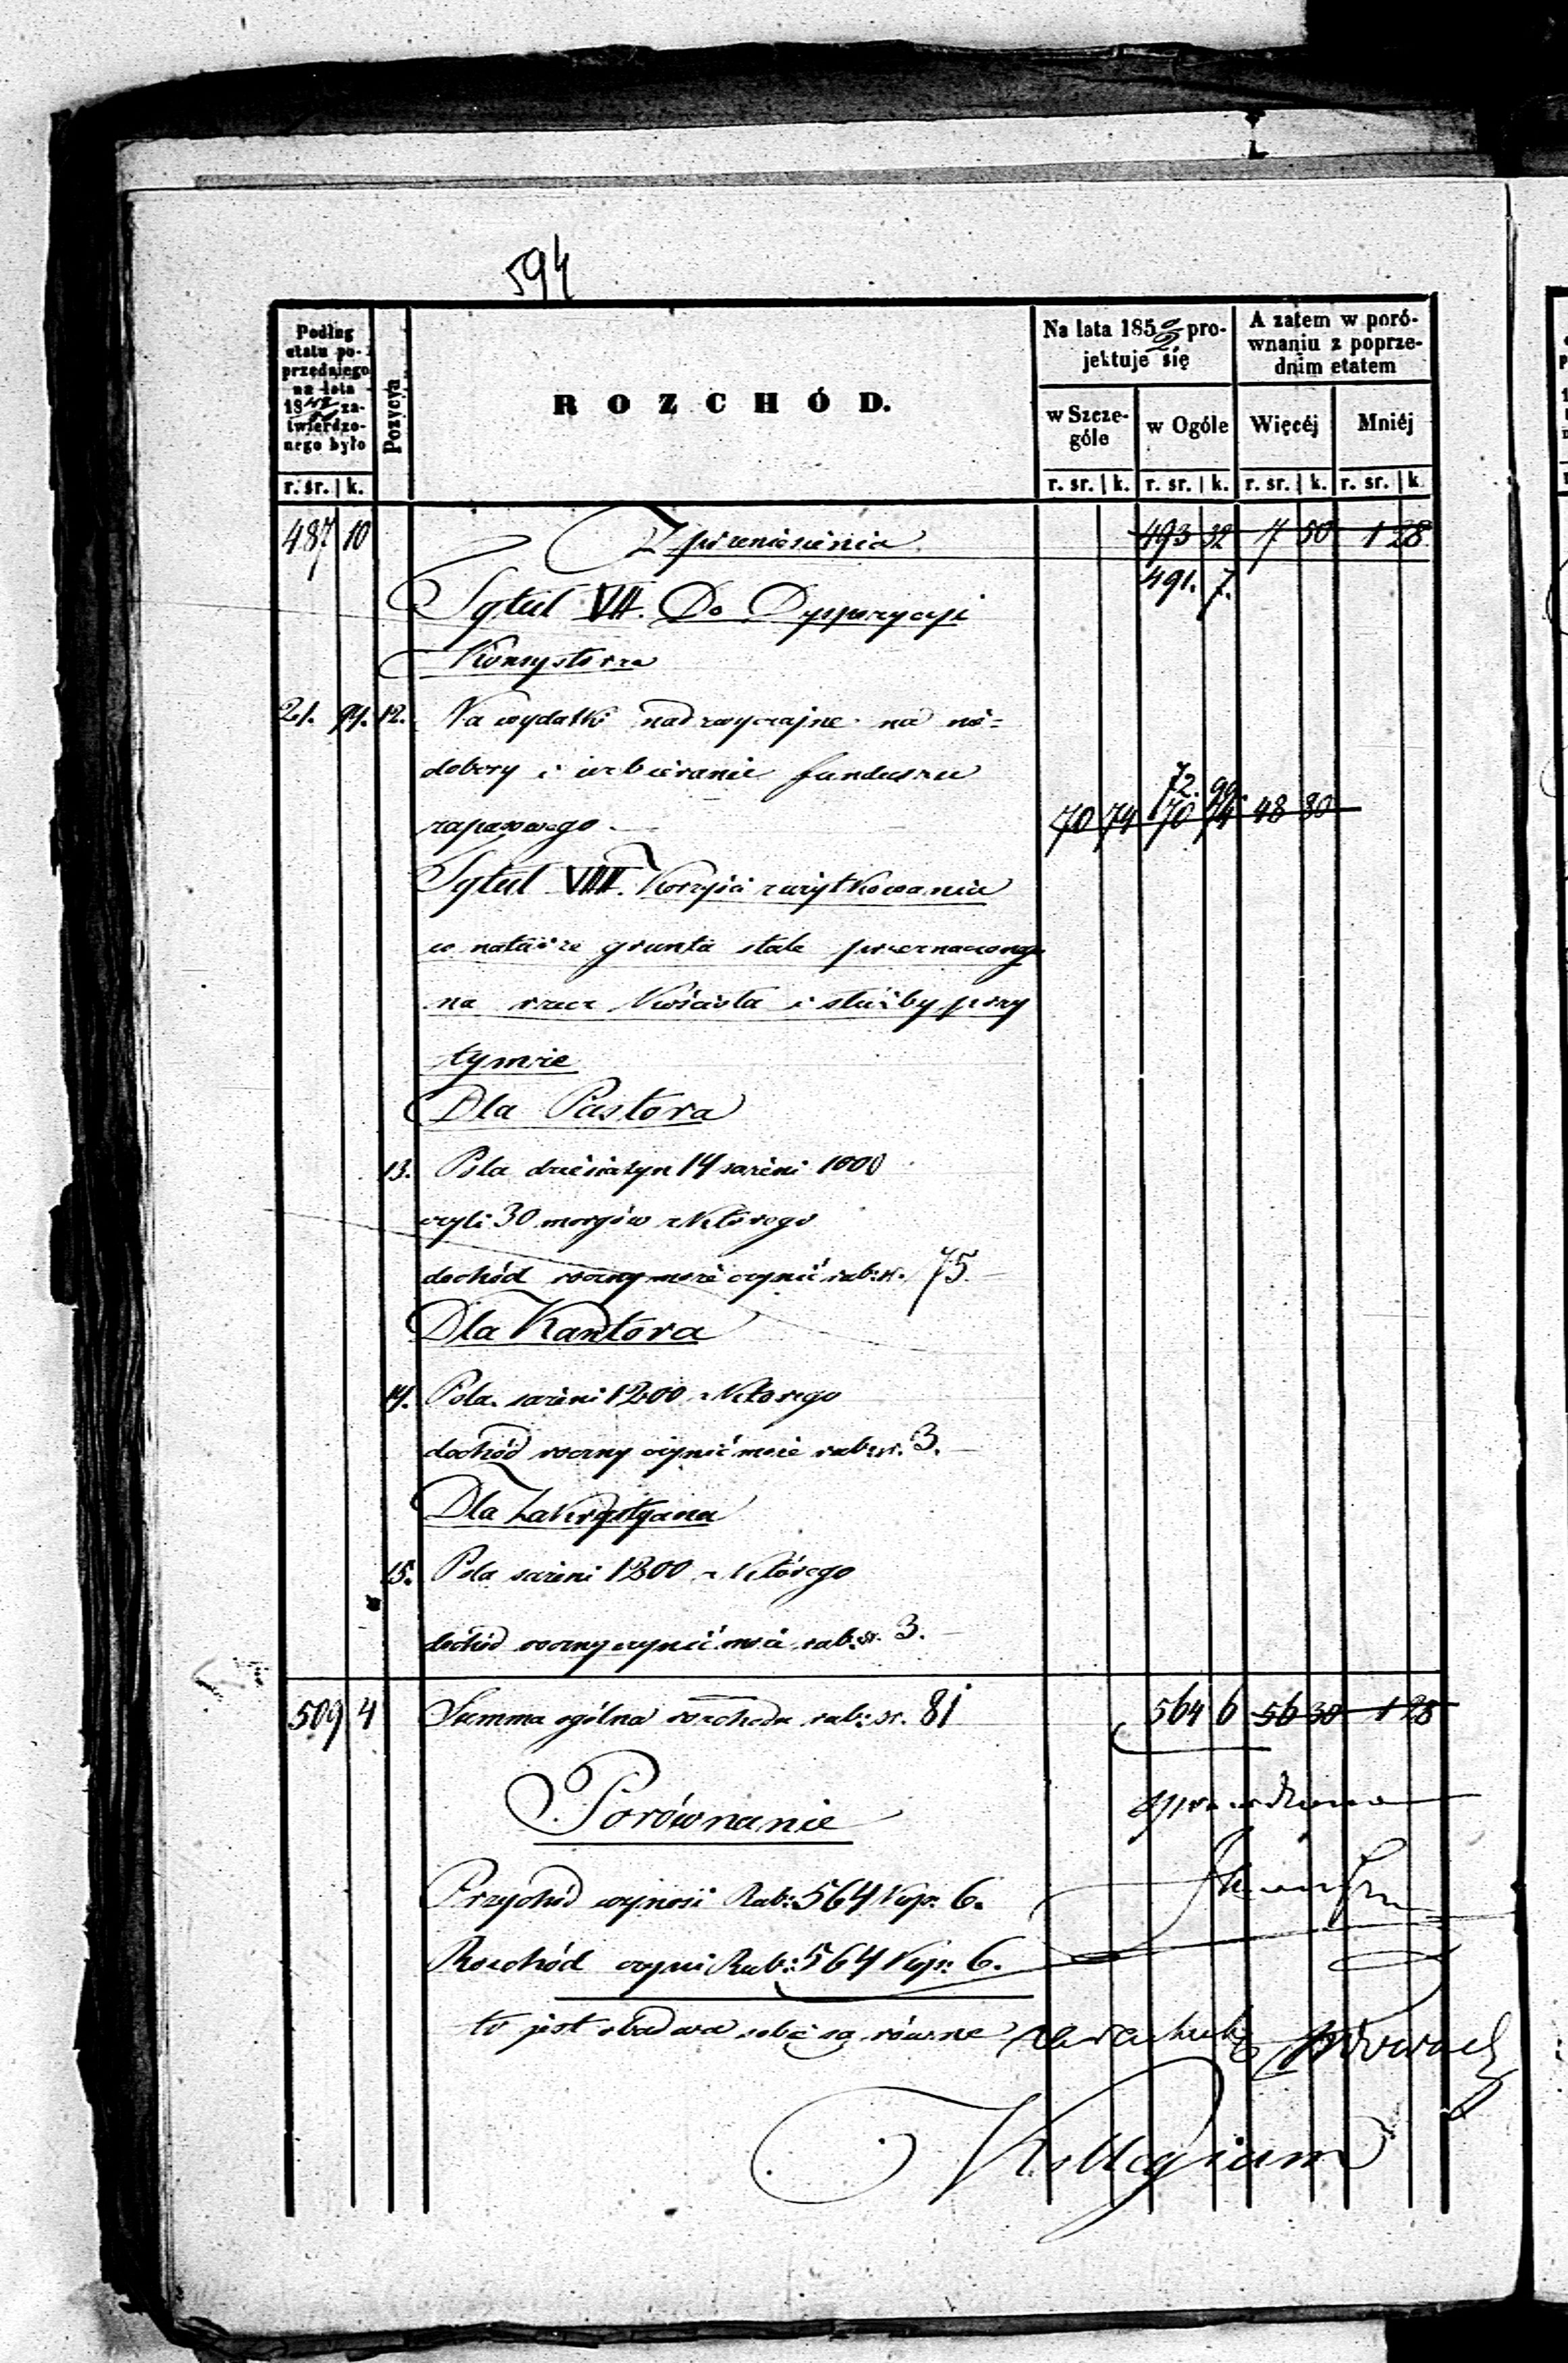 594
Podług etatu poprzedniego na lata 18 zatwierdzonego było
Pozycya
ROZCHÓD.
Na lata 185 projektuje się
A zatem w porównaniu z poprzednim etatem
w Szczególe
w Ogóle
Więcéj
Mniéj
r. sr. k. r. sr. k. r. sr. k. r. sr. k. r. sr. k.
487 10 Z przeniesienia 493 32 7 50 1 28
491. 7.
Tytuł VII. Do Dyspozycyi
Konsystorza
21. 94. 12. Na wydatki nadzwyczajne na nie=
dobory i uzbieranie funduszu
72. 99
zapasowego 70 74 70 74 48 80
Tytuł VIII. Korzyści z użytkowania
w naturze gruntu stale przeznaczonego
na rzecz Kościoła i służby przy
tymże
Dla Pastora
13. Pola dziesiatyn 14 sążeni 1000
czyli 30 morgów z którego
dochód roczny może czynić rub: sr. 75.
Dla Kantora
14. Pola sążeni 1200 z którego
dochód roczny czynić może rub: sr. 3.
Dla Zakrystyana
15. Pola sążeni 1200 z którego
dochód roczny czynić może rub: sr. 3.
509 4 Summa ogólna rozchodu rub: sr. 81 564 6 56 30 1 28
Porównanie
Przychód wynosi Rub: 564 Kop: 6.
Rozchód czyni Rub: 564 Kop: 6.
to jest obadwa sobie są równe
Kollegium